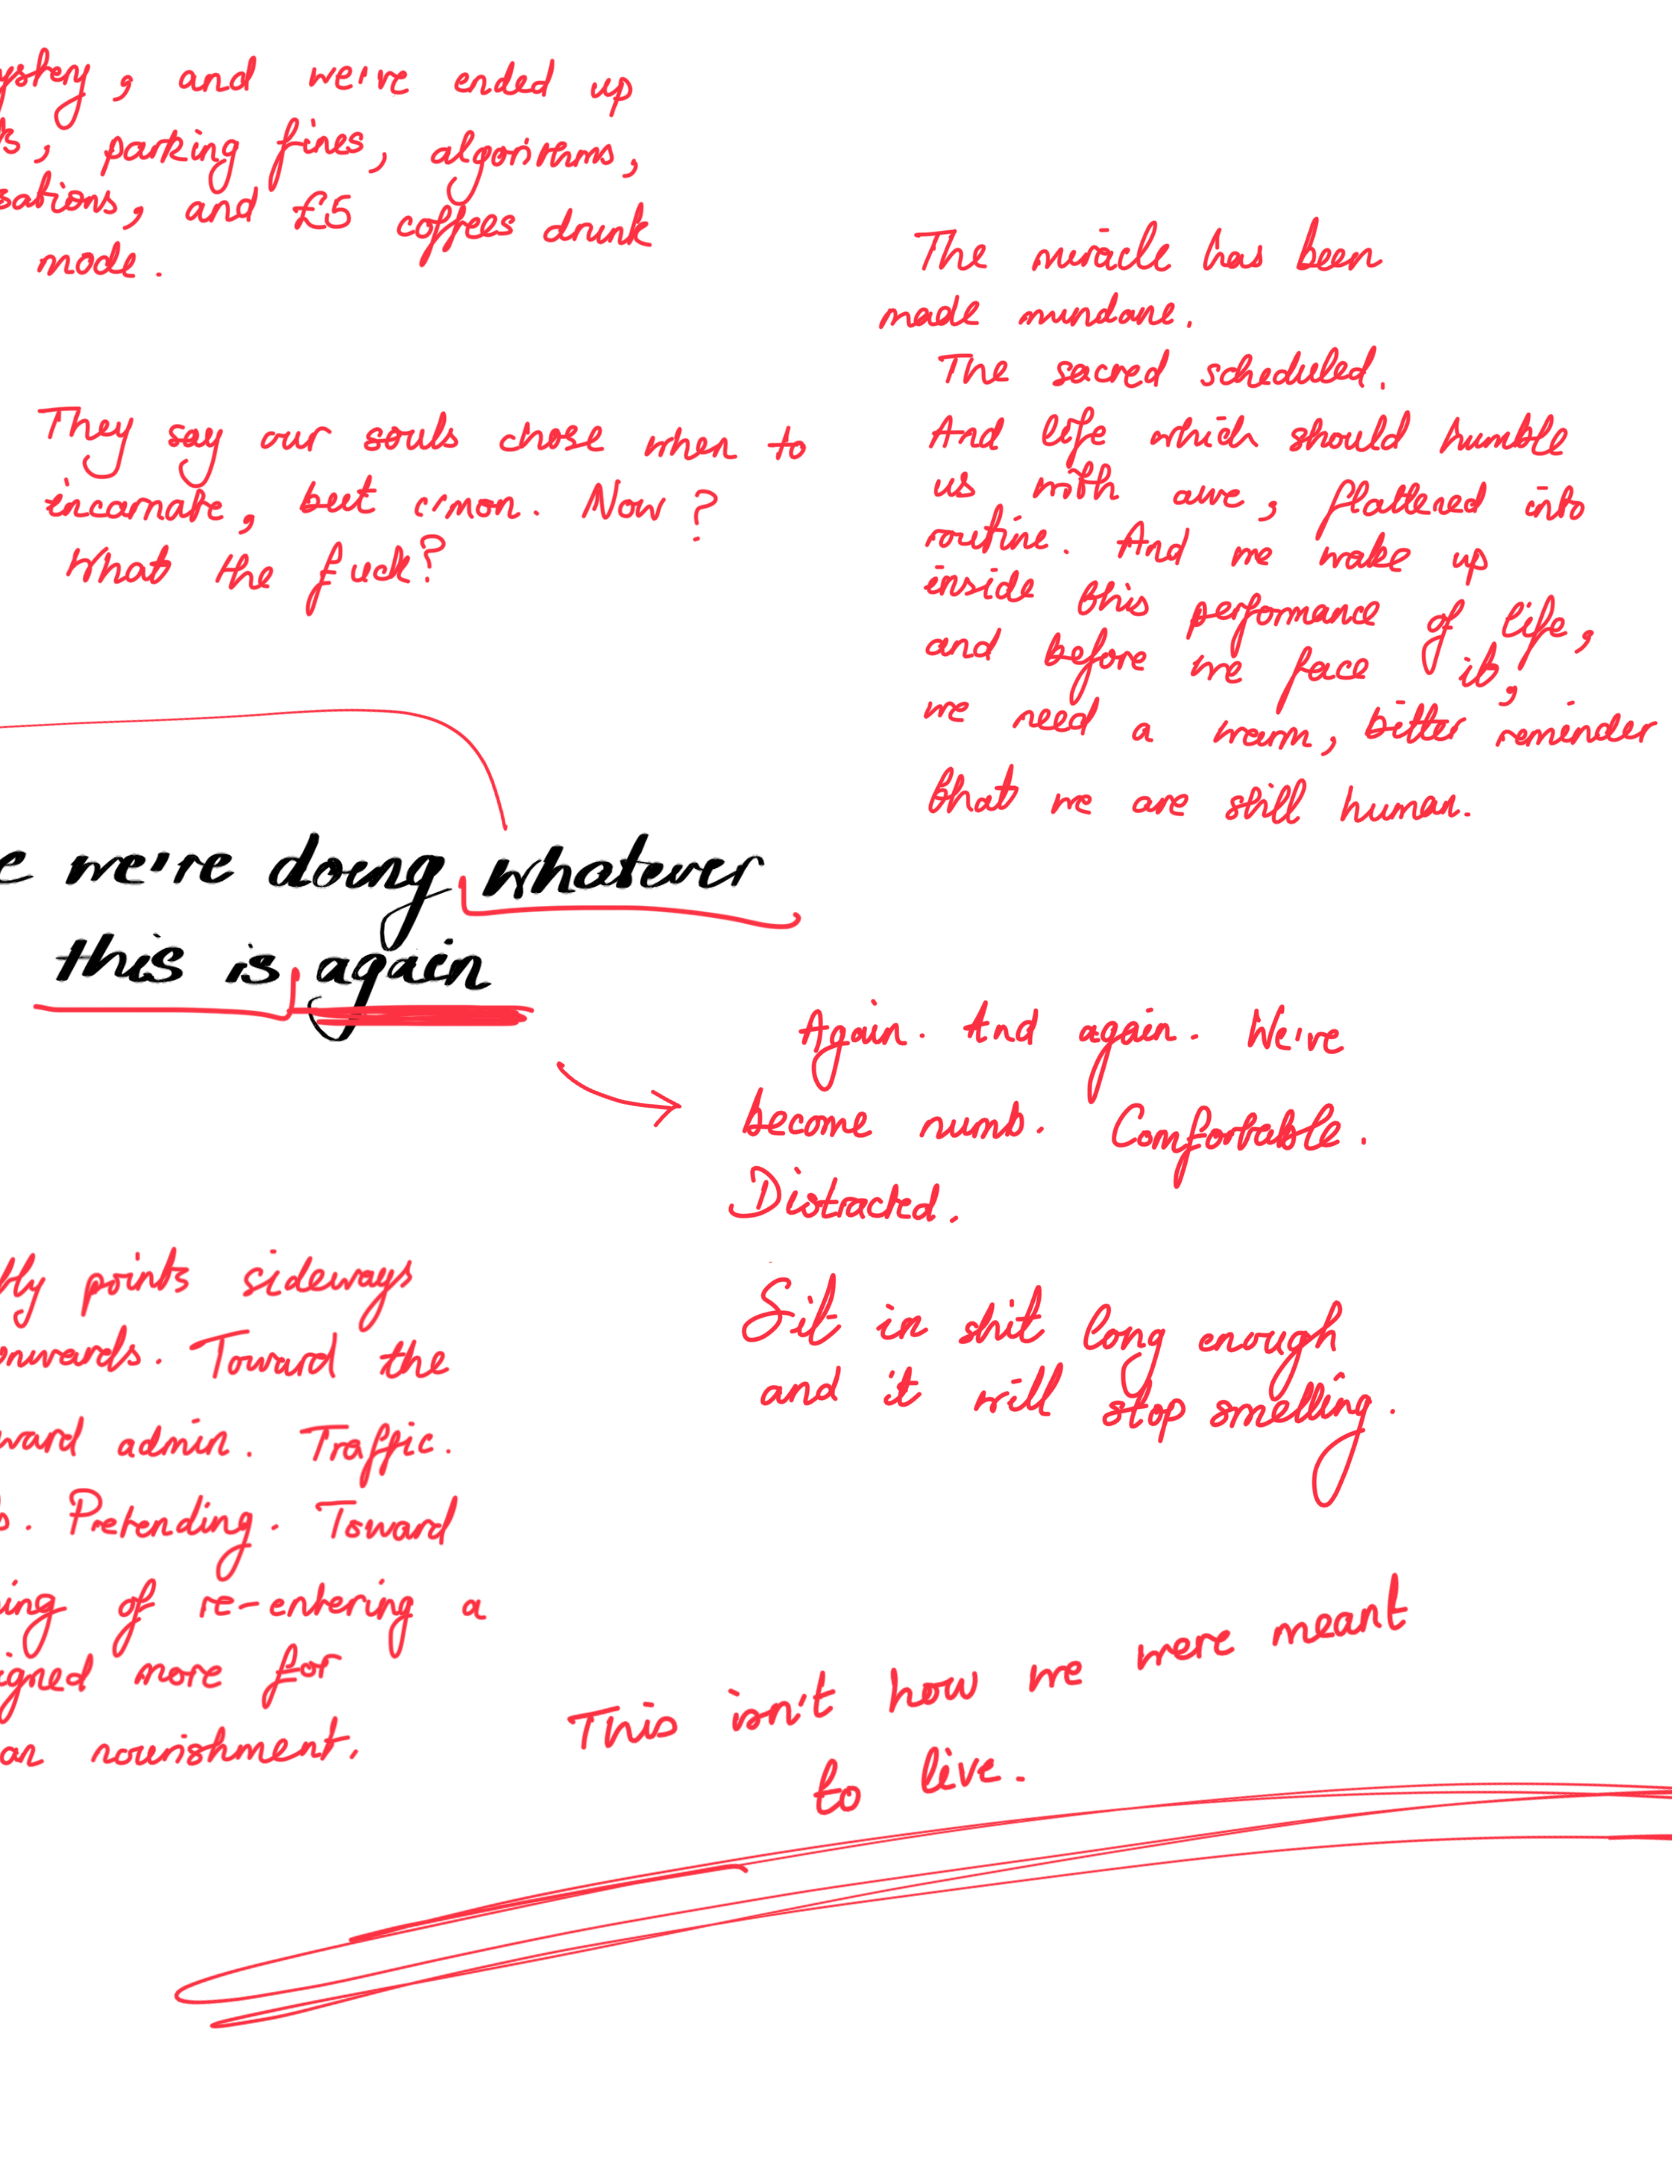 and we're ended up
parking fines, algorithms,
and £5 coffees drunk
mode.
They say our souls chose when to
incarnate, but c'mon. Now?
What the fuck?
The miracle has been
made mundane.
The sacred scheduled.
And life which should humble
us with awe, flattened into
routine. And we wake up
inside this performance of life,
and before we face it,
we need a warm, bitter reminder
that we are still human.
we're doing whatever
this is again
Again. And again. We've
become numb. Comfortable.
Distracted.
Sit in shit long enough
and it will stop smelling.
points sideways
Toward the
admin. Traffic.
Pretending. Toward
of re-entering a
more for
nourishment.
This isn't how we were meant
to live.